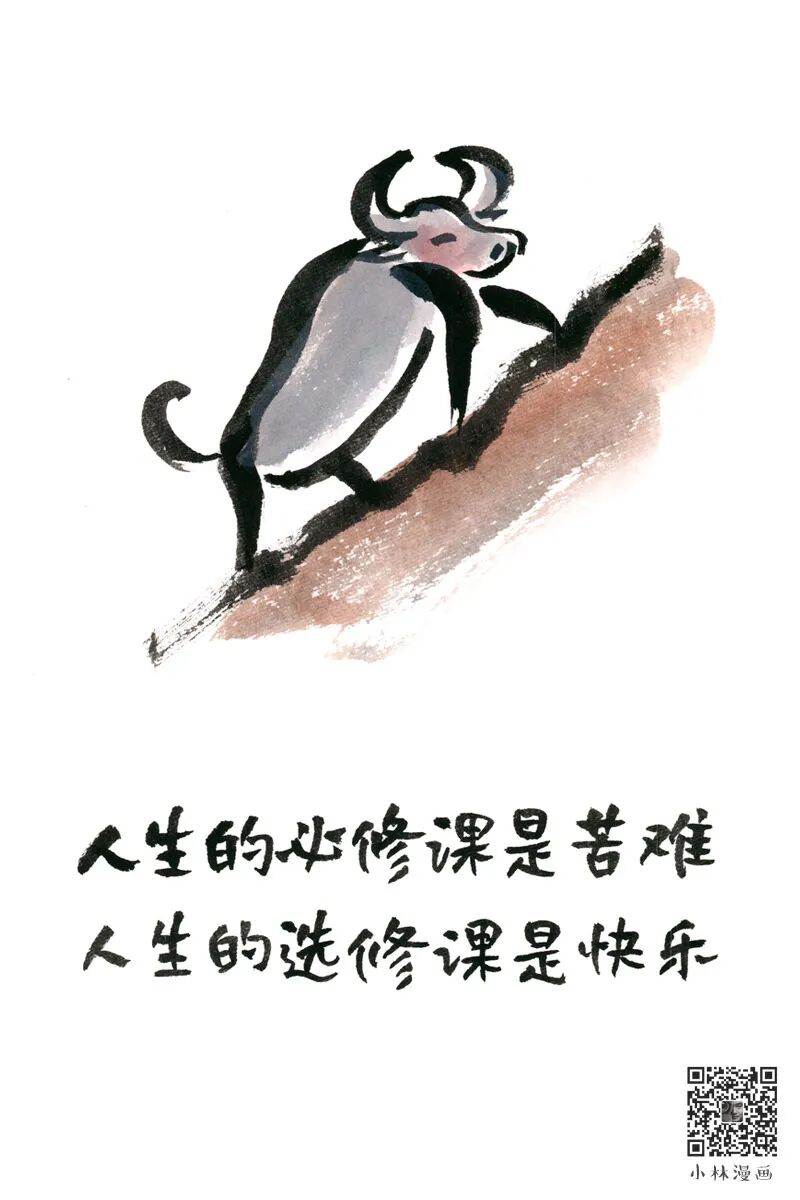 人生的必修课是苦难
人生的选修课是快乐
小林漫画